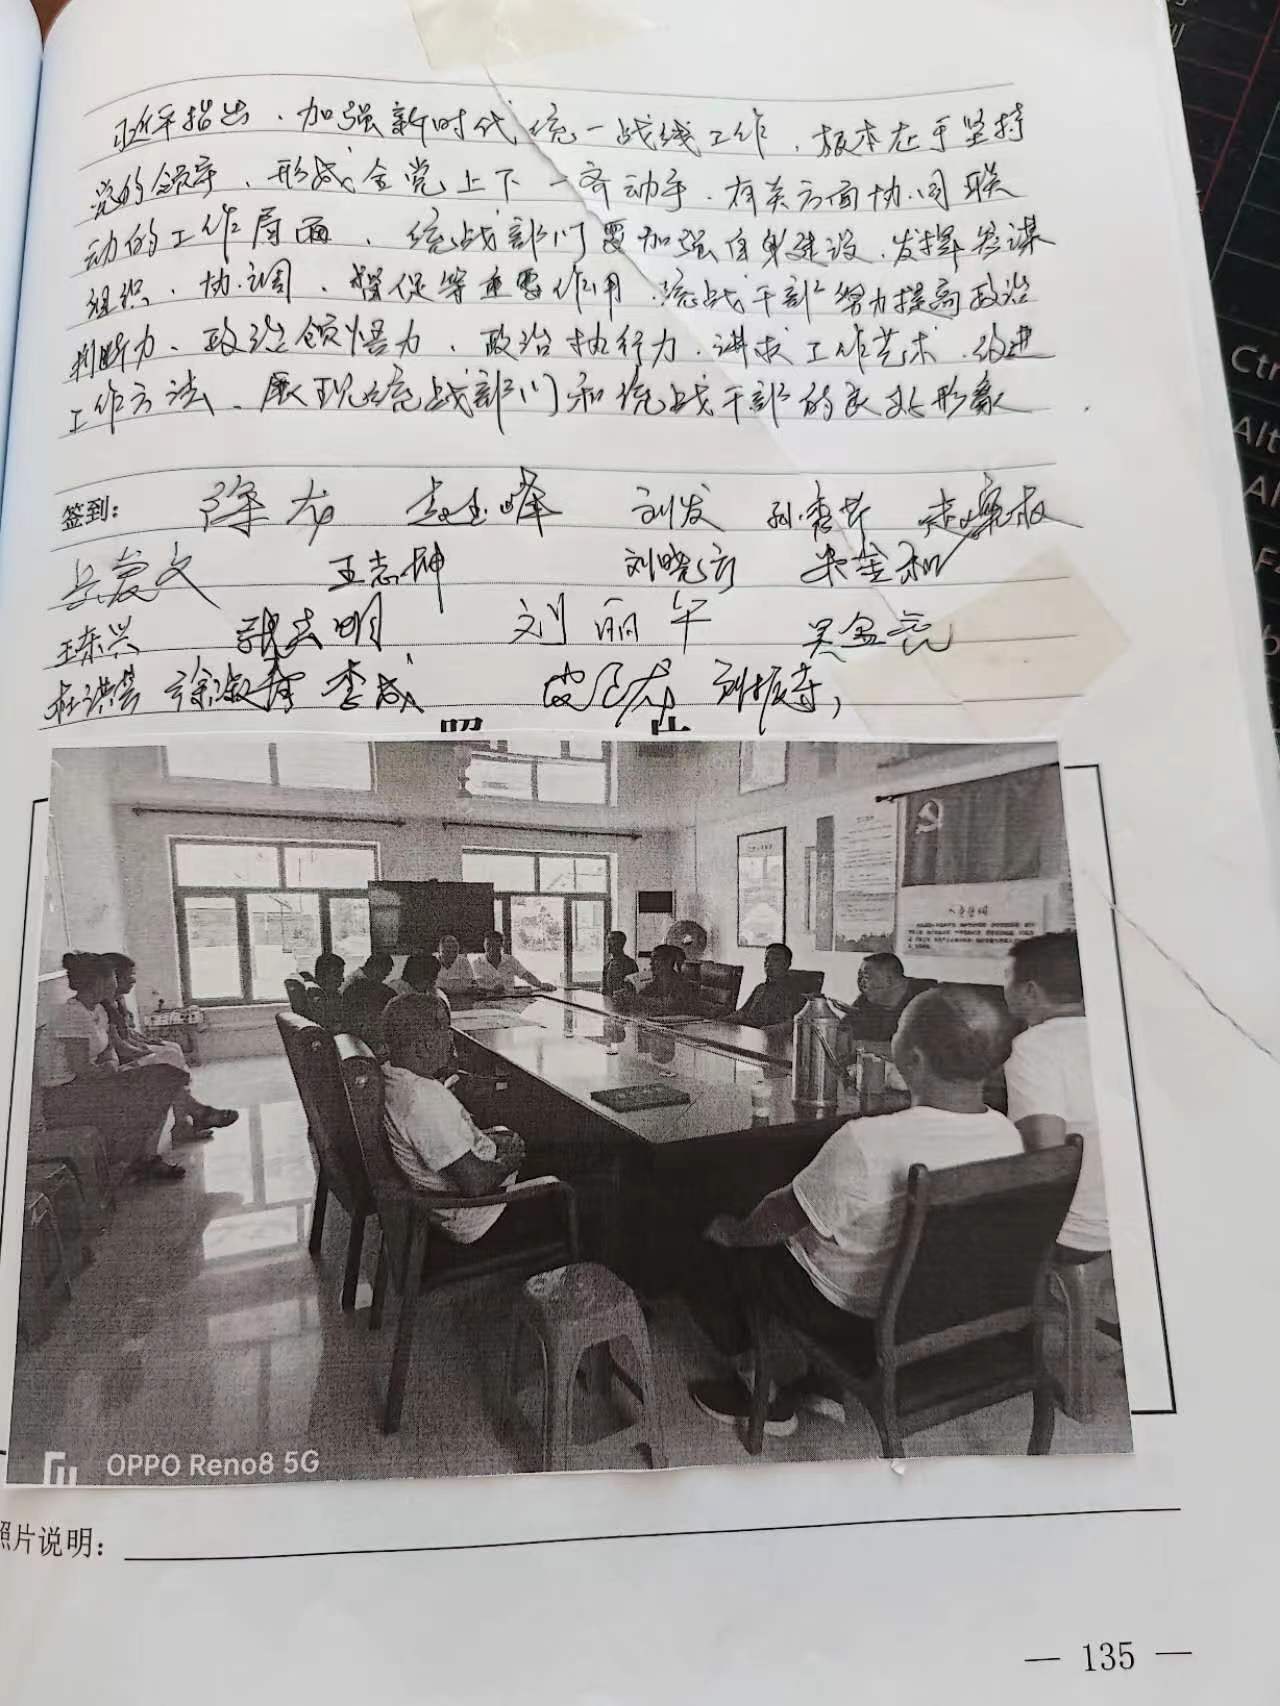 习近平指出、加强新时代统一战线工作、根本在于坚持
党的领导、形成全党上下一齐动手、有关方面协同联
动的工作局面、统战部门要加强自身建设、发挥参谋
组织、协调、督促等重要作用、统战干部努力提高政治
判断力、政治领悟力、政治执行力、讲求工作艺术、改进
工作方法、展现统战部门和统战干部的良好形象
签到: 刘发
王志坤 刘晓云 朱金和
王东兴 张志明 刘丽华
李成 刘振寿
OPPO Reno8 5G
照片说明:
— 135 —